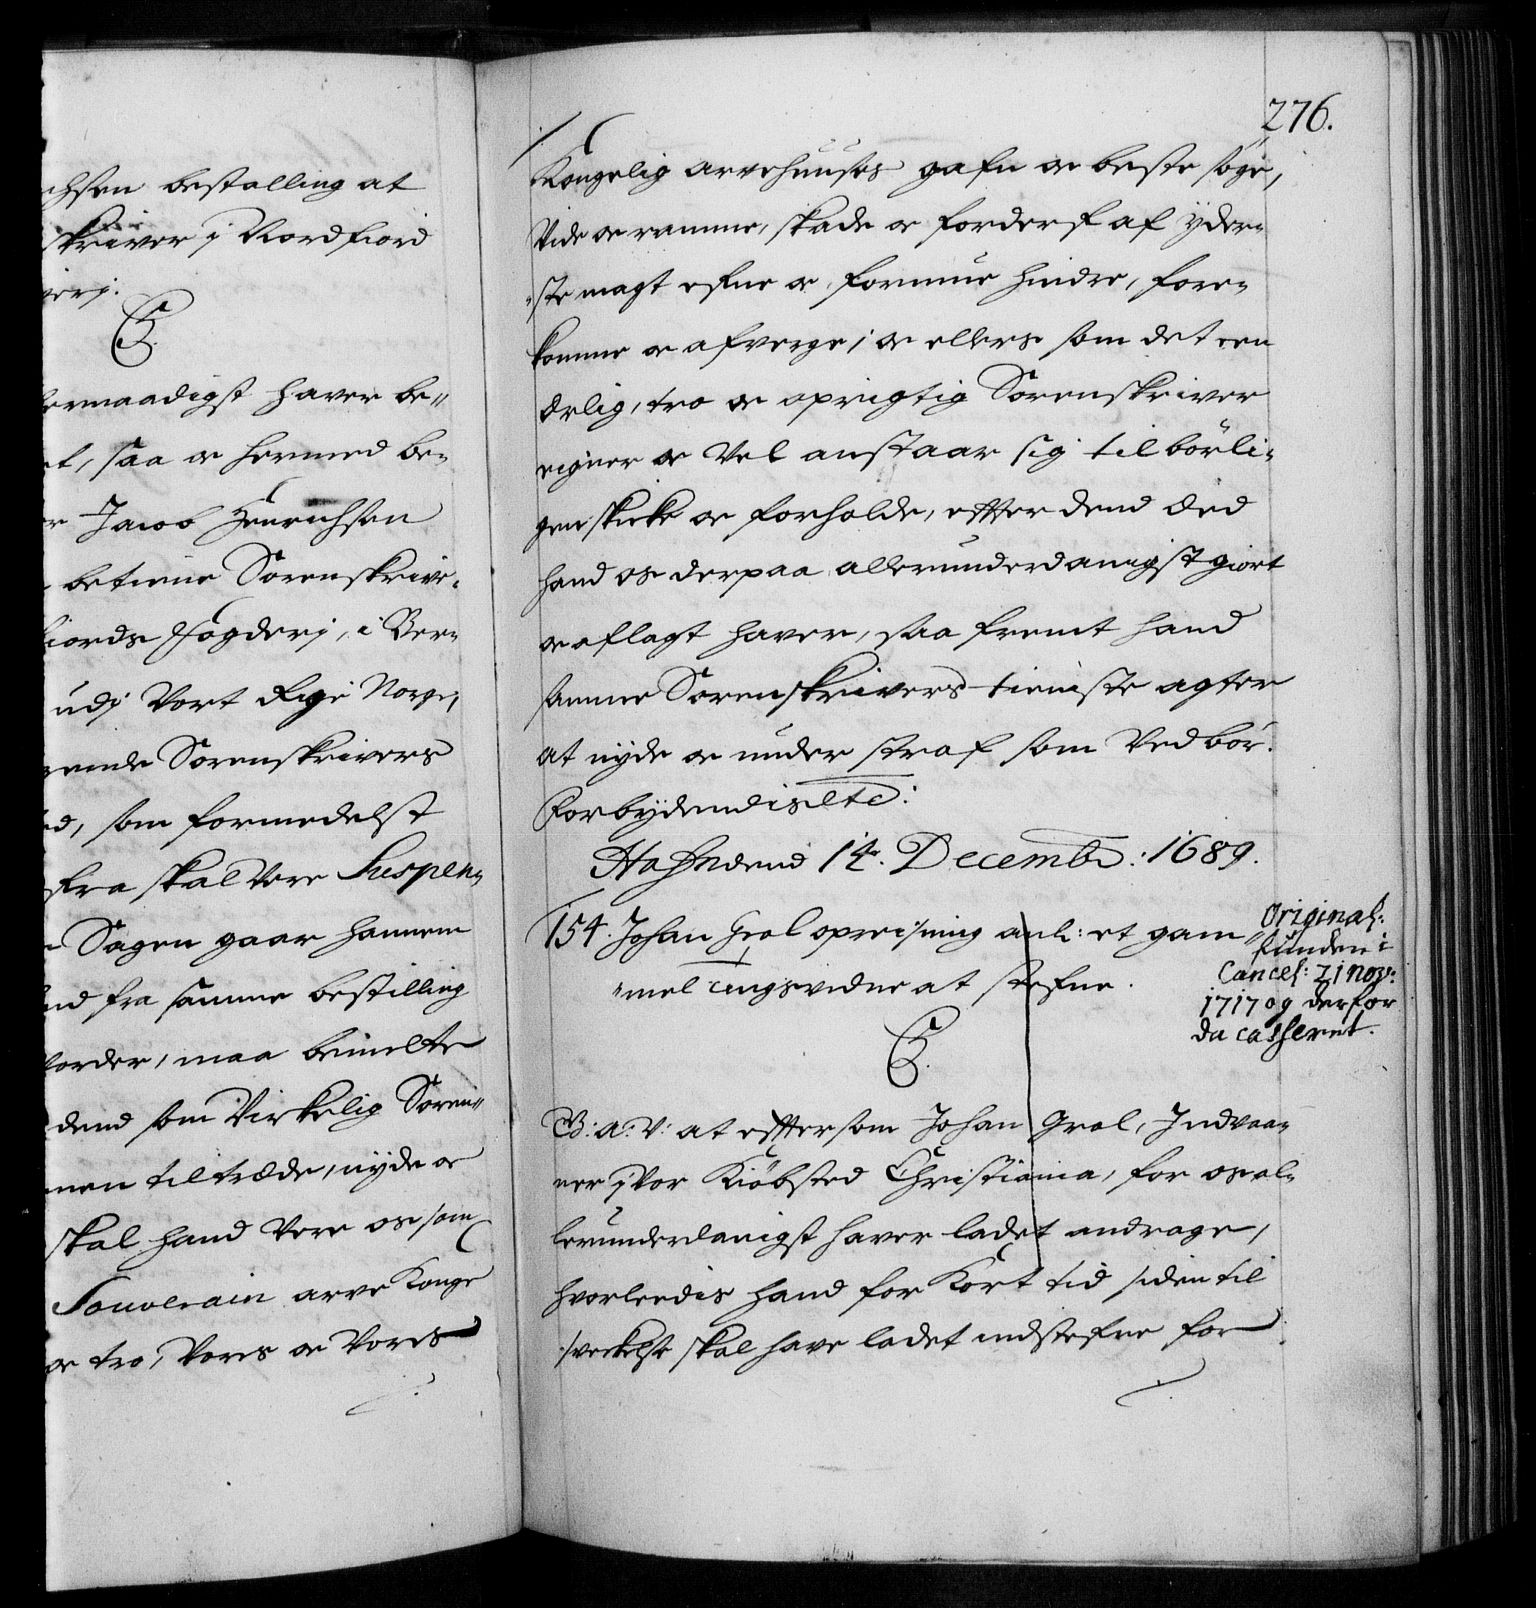 chsen bestalling at
skriver j Nordfiord
derj.
C5.
lernaadigst haver be-
et, saa oc hermed be-
r Jacob Henrichsen
betiene Sorenskrive-
fiords Fogderj, i Ber-
udj Vort Rige Norge,
rende Sorenskrivers
ed, som formedelst
fra skal Vere Suspen-
Sagen gaar hannem
nd fra samme bestilling
vorder, maa bemelte
dend som Virkelig Soren-
men tiltræde, nyde oc
skal hand Vere os som
Souverain arve Konge
oc tro, Voris oc Voris
276.
Kongelig arvehuuses gafn oc beste søge,
Vide oc ramme, skade oc forderf af yder-
ste magt efne oc formue hindre, fore-
komme oc afverge, oc ellers som det een
Ærlig, tro oc oprigtig Sorenskriver
eigner oc Vel anstaar sig tilbørli-
gen skicke oc forholde, effter dend Æed
hand os derpaa allerunderdanigst giort
oc aflagt haver, saa fremt hand
samme Sorenskrivers tieniste agter
at nyde oc under straf som Vedbør.
Forbydendis etc:
Hafn dend 14. Decembr: 1689.
154. Johan Grol opreisning anl: et gam-
mel tingsvidne at stefne.
Original:
funden i
Cancel: 21 nov:
1717 og derfor
da casseret.
C5.
G: a: V: at efftersom Johan Grol, Indvaa-
ner j Vor Kiøbsted Christiania, for os al-
lerunderdanigst haver ladet andrage,
hvorleedis hand for Kort tid siden til
sveckelse skal have ladet indstefne for